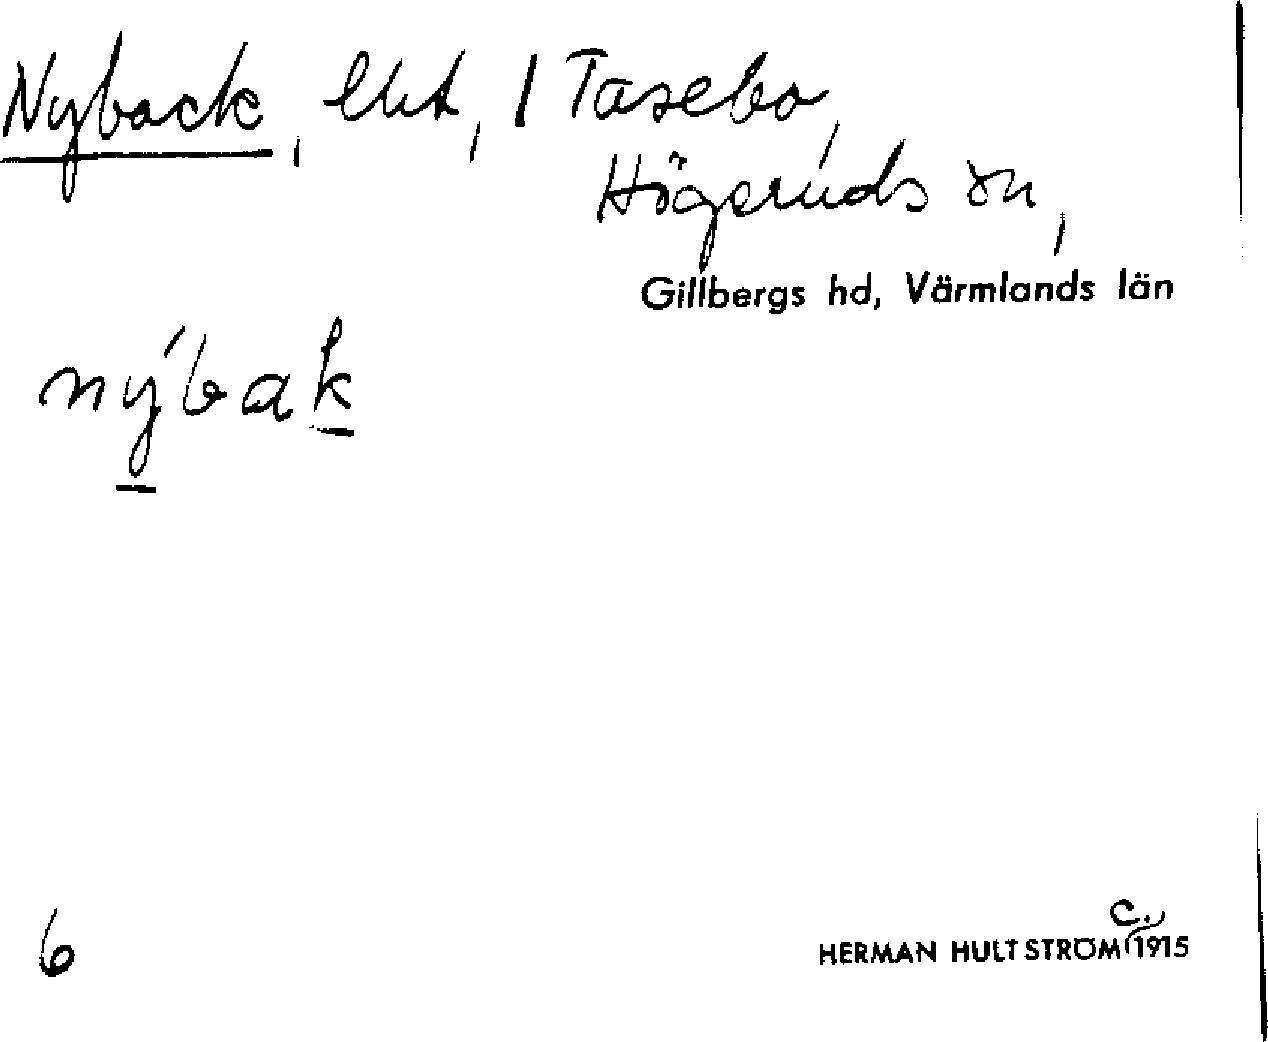 Nyback, lht, 1 Tasebo,
Högeruds sn,
Gillbergs hd, Värmlands län
nýbak
6
HERMAN HULTSTRÖM c. 1915